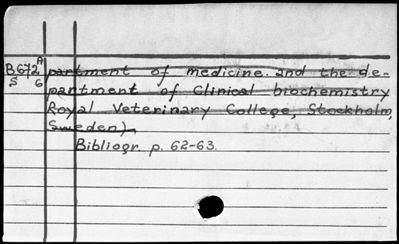 A
B672 partment of medicine and the de-
S 6 partment of clinical biochemistry
Royal Veterinary College, Stockholm,
Sweden).
Bibliogr. p. 62-63.